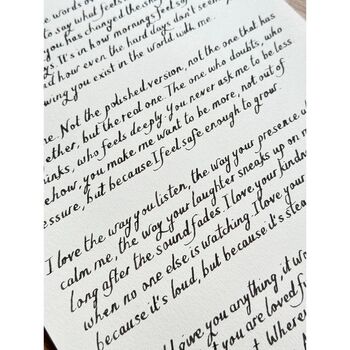 e words o
to say what feels
you has changed the
s. It's in how mornings feel so
d how even the hard days don't seem
wing you exist in the world with me.
e. Not the polished version, not the one that has
ether, but the real one. The one who doubts, who
inks, who feels deeply. You never ask me to be less
ehow, you make me want to be more, not out of
essure, but because I feel safe enough to grow.
I love the way you listen, the way your presence
calm me, the way your laughter sneaks up on m
long after the sound fades. I love your kindn
when no one else is watching. I love your
because it's loud, but because it's stea
I give you anything, it wo
t you are loved fu
t. Where